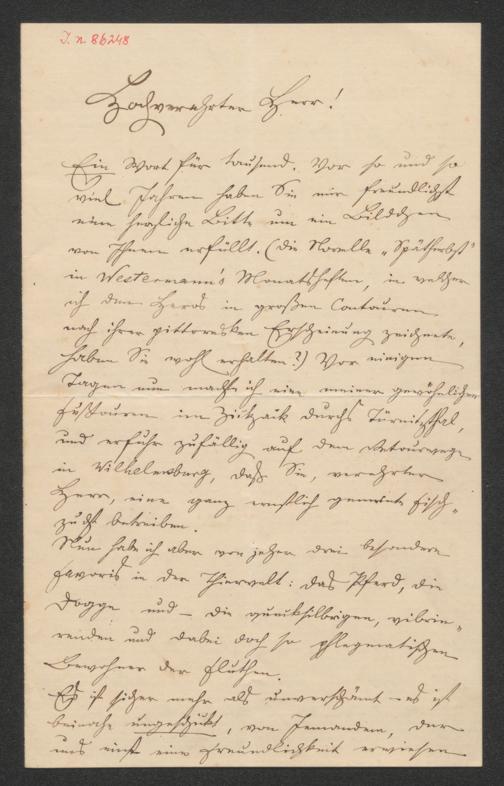 I. n. 86248
Hochverehrter Herr!
Ein Wort für tausend. Vor so und so
viel Jahren haben Sie mir freundlichst
eine herzliche Bitte um ein Bildchen
von Ihnen erfüllt. (Die Novelle „Spätherbst"
in Westermann's Monatsheften, in welcher
ich den Heros in großen Contouren
nach ihrer pittoresken Erscheinung zeichnete,
haben Sie wohl erhalten?) Vor einigen
Tagen nun mache ich eine meiner gewöhnlichen
Fußtouren im Zickzack durchs Türnitzthal,
und erfuhr zufällig auf dem Retourwege
in Wilhelmsburg, daß Sie, verehrter
Herr, eine ganz ernstlich gemeinte Fisch-
zucht betreiben.
Nun habe ich aber von jeher drei besondere
Favoris in der Thierwelt: das Pferd, die
Dogge und – die quecksilbrigen, vibrie-
renden und dabei doch so phlegmatischen
Bewohner der Fluthen.
Es ist sicher mehr als unverschämt – es ist
beinahe ungeschickt, von Jemandem, der
uns einst eine Freundlichkeit erwiesen